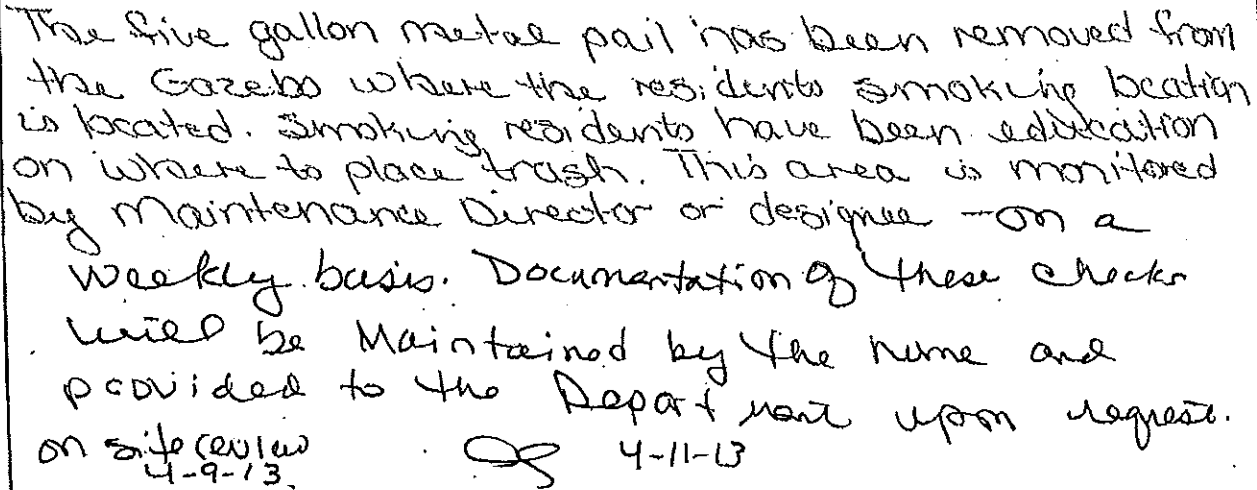 The five gallon metal pail has been removed from
the Gazebo where the residents smoking location
is located. Smoking residents have been education
on where to place trash. This area is monitored
by Maintenance Director or designee - on a
weekly basis. Documentation of these checks
will be Maintained by the home and
provided to the Department upon request.
on site review 4-11-13
4-9-13